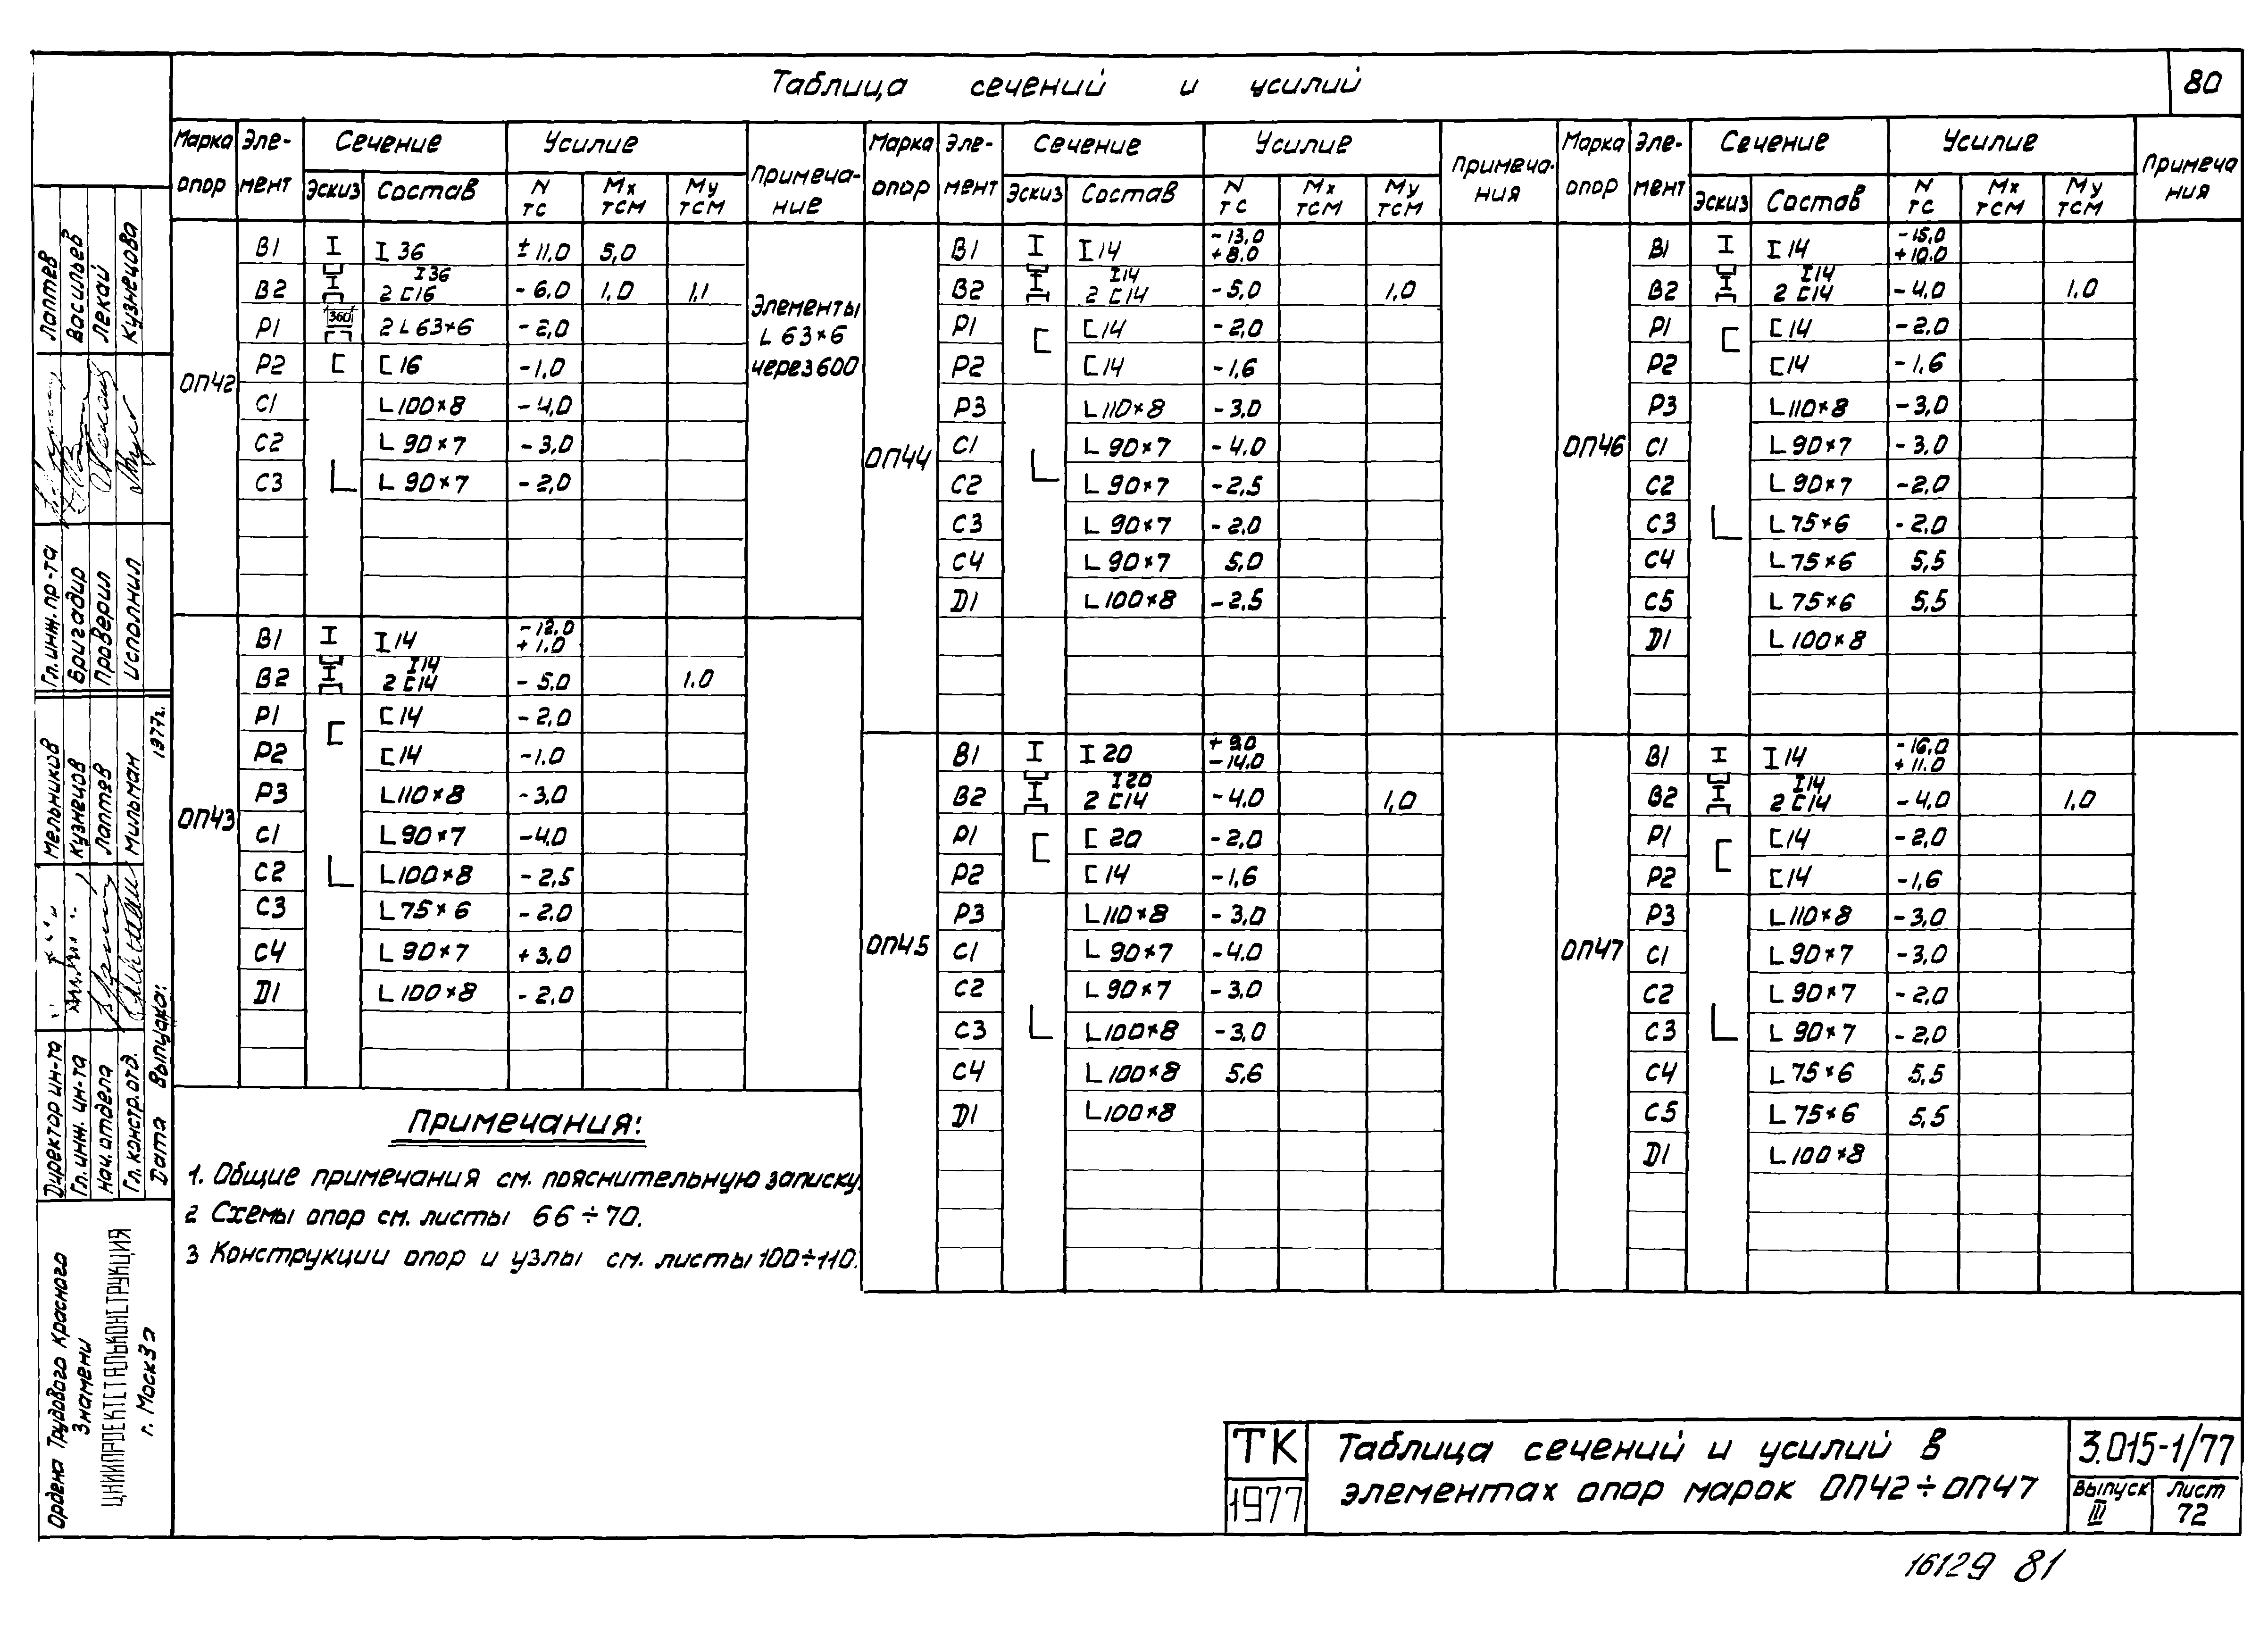 Таблица сечений и усилий
80
Марка опор | Элемент | Сечение | Усилие | Примечание
Эскиз | Состав | N тс | Mх тсм | Му тсм
ОП42
В1 I 36 ± 11,0 5,0
В2 I 36 2 [16 - 6,0 1,0 1,1
Р1 360 2 L 63×6 - 2,0
Р2 [ 16 - 1,0
С1 L 100×8 - 4,0
С2 L 90×7 - 3,0
С3 L 90×7 - 2,0
Элементы
L 63×6
через 600
ОП43
В1 I 14 - 12,0 + 1,0
В2 I 14 2 [14 - 5,0 1,0
Р1 [ 14 - 2,0
Р2 [ 14 - 1,0
Р3 L 110×8 - 3,0
С1 L 90×7 - 4,0
С2 L 100×8 - 2,5
С3 L 75×6 - 2,0
С4 L 90×7 + 3,0
D1 L 100×8 - 2,0
Примечания:
1. Общие примечания см. пояснительную записку.
2 Схемы опор см. листы 66÷70.
3 Конструкции опор и узлы см. листы 100÷110.
Марка опор | Элемент | Сечение | Усилие | Примечания
Эскиз | Состав | N тс | Mх тсм | Му тсм
ОП44
В1 I 14 - 13,0 + 8,0
В2 I 14 2 [14 - 5,0 1,0
Р1 [ 14 - 2,0
Р2 [ 14 - 1,6
Р3 L 110×8 - 3,0
С1 L 90×7 - 4,0
С2 L 90×7 - 2,5
С3 L 90×7 - 2,0
С4 L 90×7 5,0
D1 L 100×8 - 2,5
ОП45
В1 I 20 + 9,0 - 14,0
В2 I 20 2 [14 - 4,0 1,0
Р1 [ 20 - 2,0
Р2 [ 14 - 1,6
Р3 L 110×8 - 3,0
С1 L 90×7 - 4,0
С2 L 90×7 - 3,0
С3 L 100×8 - 3,0
С4 L 100×8 5,6
D1 L 100×8
Марка опор | Элемент | Сечение | Усилие | Примечания
Эскиз | Состав | N тс | Mх тсм | Му тсм
ОП46
В1 I 14 - 15,0 + 10,0
В2 I 14 2 [14 - 4,0 1,0
Р1 [ 14 - 2,0
Р2 [ 14 - 1,6
Р3 L 110×8 - 3,0
С1 L 90×7 - 3,0
С2 L 90×7 - 2,0
С3 L 75×6 - 2,0
С4 L 75×6 5,5
С5 L 75×6 5,5
D1 L 100×8
ОП47
В1 I 14 - 16,0 + 11,0
В2 I 14 2 [14 - 4,0 1,0
Р1 [ 14 - 2,0
Р2 [ 14 - 1,6
Р3 L 110×8 - 3,0
С1 L 90×7 - 3,0
С2 L 90×7 - 2,0
С3 L 90×7 - 2,0
С4 L 75×6 5,5
С5 L 75×6 5,5
D1 L 100×8
Гл. инж. пр-та Лаптев
Бригадир Васильев
Проверил Лекай
Исполнил Кузнецова
Директор ин-та Мельников
Гл. инж. ин-та Кузнецов
Нач. отдела Лаптев
Гл. констр. отд. Мильман
Дата выпуска: 1977г.
Ордена Трудового Красного
Знамени
ЦНИИПРОЕКТСТАЛЬКОНСТРУКЦИЯ
г. Москва
ТК
1977
Таблица сечений и усилий в
элементах опор марок ОП42÷ОП47
3.015-1/77
Выпуск III
Лист 72
16129 81